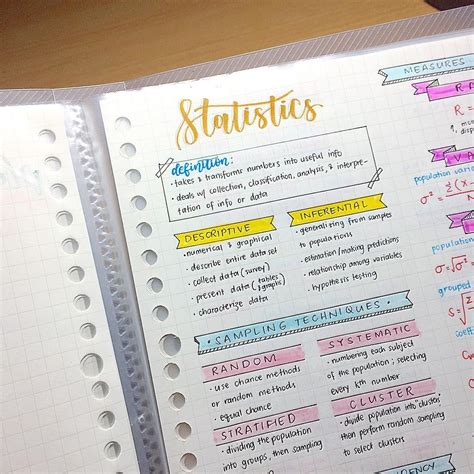 Statistics
definition:
• takes & transforms numbers into useful info
• deals w/ collection, classification, analysis, & interpre-
tation of info or data
DESCRIPTIVE
• numerical & graphical
• describe entire data set
• collect data (survey)
• present data (tables & graphs)
• characterize data
INFERENTIAL
• generalizing from samples
to populations
• estimation/making predictions
• relationship among variables
• hypothesis testing
SAMPLING TECHNIQUES
RANDOM
• use chance methods
or random methods
• equal chance
STRATIFIED
• dividing the population
into groups, then sampling
SYSTEMATIC
• numbering each subject
of the population ; selecting
every kth number
CLUSTER
• divide population into "clusters"
then perform random sampling
to select clusters
MEASURES
RA
R =
VA
population
σ² =
population
σ = √σ²
grouped
S =